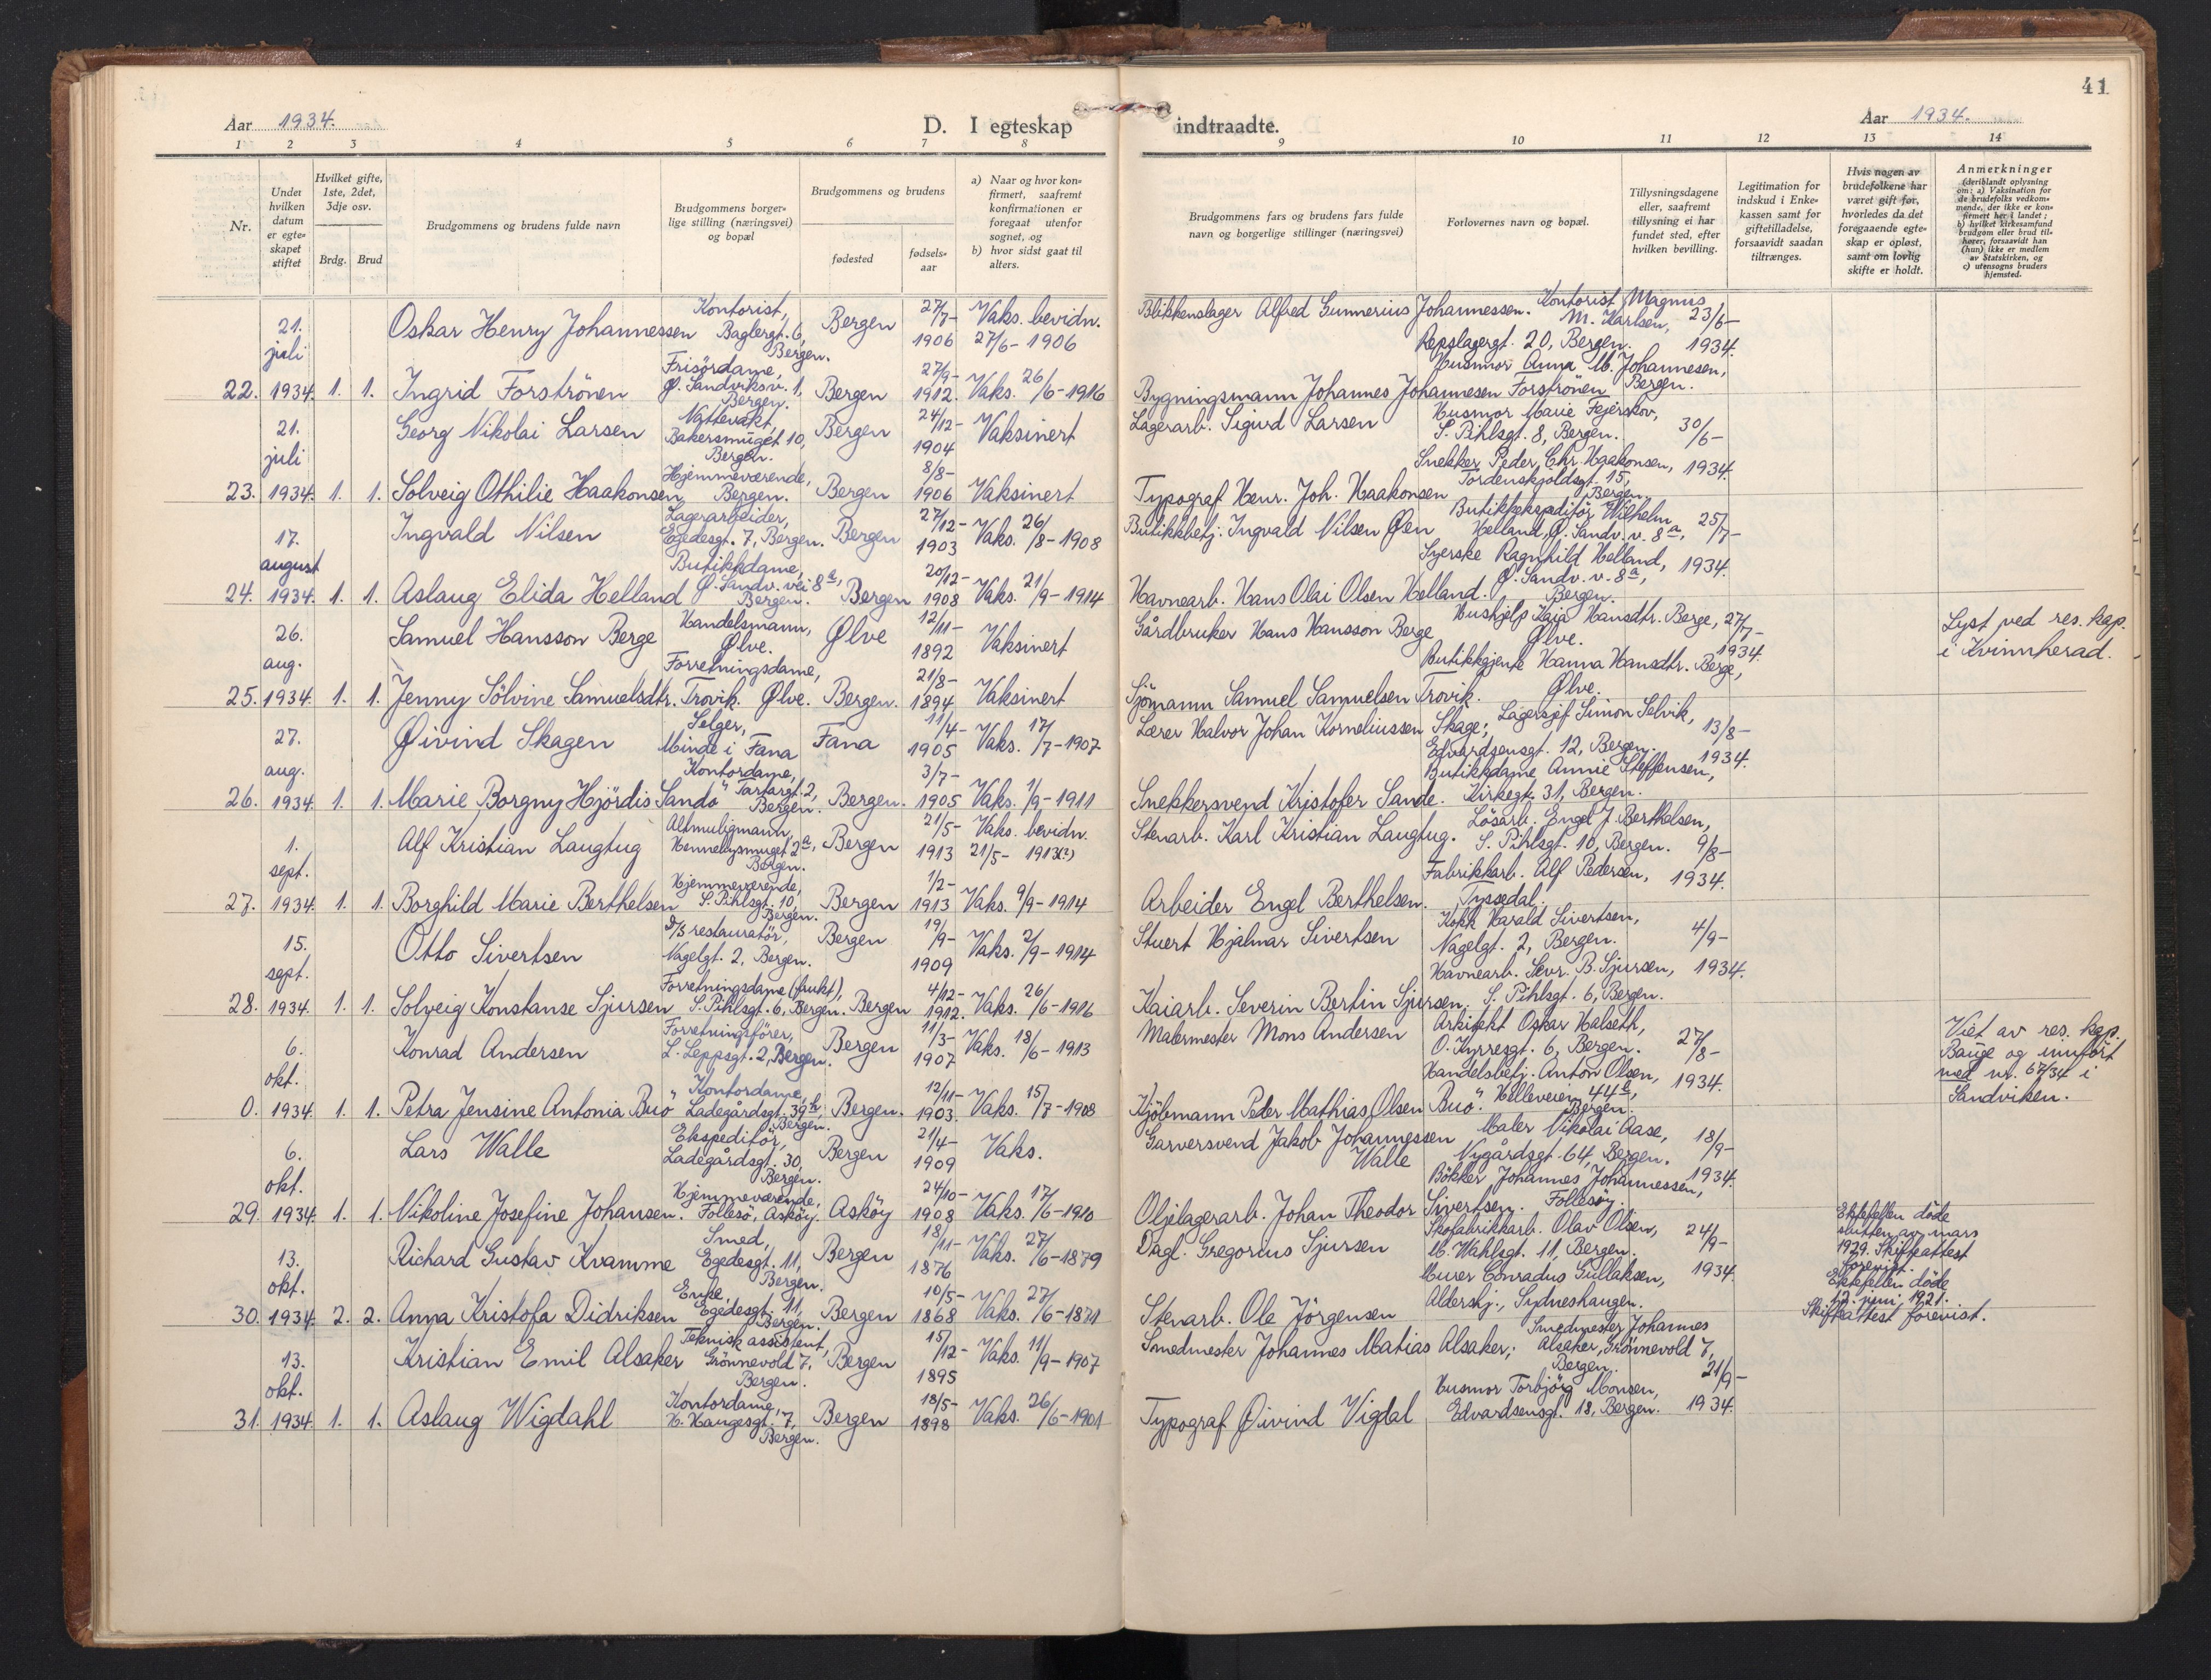 41
Aar 1934.
D. I egteskap indtraadte.
Aar 1934.
1 2 3 4 5 6 7 8 9 10 11 12 13 14
Nr.
Under hvilken datum er egteskapet stiftet
Hvilket gifte, 1ste, 2det, 3dje osv.
Brdg. Brud
Brudgommens og brudens fulde navn
Brudgommens borgerlige stilling (næringsvei) og bopæl
Brudgommens og brudens
fødested
fødselsaar
a) Naar og hvor konfirmert, saafremt konfirmationen er foregaat utenfor sognet, og
b) hvor sidst gaat til alters.
Brudgommens fars og brudens fars fulde navn og borgerlige stillinger (næringsvei)
Forlovernes navn og bopæl.
Tillysningsdagene eller, saafremt tillysning ei har fundet sted, efter hvilken bevilling.
Legitimation for indskud i Enkekassen samt for giftetilladelse, forsaavidt saadan tiltrænges.
Hvis nogen av brudefolkene har været gift før, hvorledes da det foregaaende egteskap er opløst, samt om lovlig skifte er holdt.
Anmerkninger
(deriblandt oplysning om: a) Vaksination for de brudefolks vedkommende, der ikke er konfirmert her i landet; b) hvilket kirkesamfund brudgom eller brud tilhører, forsaavidt han (hun) ikke er medlem av Statskirken, og c) utensogns bruders hjemsted.
22. 21. juli 1934. 1. 1.
Oskar Henry Johannessen Kontorist, Baglergt. 6, Bergen. Bergen 27/7- 1906 Vaks. bevidn. 27/6- 1906
Blikkenslager Alfred Gunnerius Johannessen. Kontorist Magnus M. Karlsen, Repslagergt. 20, Bergen. 23/6- 1934.
Ingrid Forströnen Frisördame, Ø. Sandviksv. 1, Bergen. Bergen 27/9- 1912. Vaks. 26/6-1916
Bygningsmann Johannes Johannesen Forströnen Husmor Anna M. Johannesen, Bergen.
23. 21. juli 1934. 1. 1.
Georg Nikolai Larsen Nattevakt, Bakersmuget 10, Bergen. Bergen 24/12- 1904 Vaksinert
Lagerarb. Sigurd Larsen Husmor Marie Fejerskov, S. Pihlsgt. 8, Bergen. 30/6- 1934.
Solveig Othilie Haakonsen Hjemmeværende, Bergen. Bergen 8/8- 1906 Vaksinert
Typograf Henr. Joh. Haakonsen Snekker Peder Chr. Haakonsen, Tordenskjoldsgt. 15, Bergen.
24. 17. august 1934. 1. 1.
Ingvald Nilsen Lagerarbeider, Egedesgt. 7, Bergen. Bergen 27/12- 1903 Vaks. 26/8-1908
Butikkbetj. Ingvald Nilsen Øen Butikkekspeditör Wilhelm Helland, Ø. Sandv. v. 8a, 25/7- 1934.
Aslaug Elida Helland Butikkdame, Ø. Sandv. vei 8a, Bergen. Bergen 20/12- 1908 Vaks. 21/9-1914
Havnearb. Hans Olai Olsen Helland. Syerske Ragnhild Helland, Ø. Sandv. v. 8a, Bergen.
25. 26. aug. 1934. 1. 1.
Samuel Hansson Berge Handelsmann, Ølve. Ølve 12/11- 1892 Vaksinert
Gårdbruker Hans Hansson Berge Hushjelp Kaia Hansdtr. Berge, Ølve. 27/7- 1934. Lyst ved res. kap. i Kvinnherad.
Jenny Sölvine Samuelsdtr. Trovik. Forretningsdame, Ølve. Bergen. 21/8- 1894 Vaksinert
Sjömann Samuel Samuelsen Trovik. Butikkgjente Hanna Hansdtr. Berge, Ølve.
26. 27. aug. 1934. 1. 1.
Øivind Skagen Selger, Minde i Fana Fana 11/4- 1905 Vaks. 17/7-1907
Lærer Halvor Johan Korneliussen Skage; Lagersjef Simon Selvik, Edvardsensgt. 12, Bergen. 13/8- 1934.
Marie Borgny Hjördis Sandö Kontordame, Tartargt. 2, Bergen. Bergen. 3/7- 1905 Vaks. 1/9-1911
Snekkersvend Kristofer Sande. Butikkdame Annie Steffensen, Kirkegt. 31, Bergen.
27. 1. sept. 1934. 1. 1.
Alf Kristian Laugtug Altmuligmann, Hennebysmuget 2a, Bergen. Bergen 21/5- 1913 Vaks. bevidn. 21/5- 1913(?)
Stenarb. Karl Kristian Laugtug. Lösarb. Engel J. Berthelsen, S. Pihlsgt. 10, Bergen. 9/8- 1934.
Borghild Marie Berthelsen Hjemmeværende, S. Pihlsgt. 10, Bergen. Bergen 1/2- 1913 Vaks. 9/9-1914
Arbeider Engel Berthelsen. Fabrikkarb. Alf Pedersen, Tyssedal.
28. 15. sept. 1934. 1. 1.
Otto Sivertsen D/S restauratör, Nagelgt. 2, Bergen. Bergen 19/9- 1909 Vaks. 2/9-1914
Stuert Hjalmar Sivertsen Kokk Harald Sivertsen, Nagelgt. 2, Bergen. 4/9- 1934.
Solveig Konstanse Sjursen Forretningsdame (frukt), S. Pihlsgt. 6, Bergen. Bergen 4/12- 1912. Vaks. 26/6-1916
Kaiarb. Severin Bertin Sjursen. Havnearb. Sevr. B. Sjursen, S. Pihlsgt. 6, Bergen.
0. 6. okt. 1934. 1. 1.
Konrad Andersen Forretningsförer, L. Leppsgt. 2, Bergen. Bergen 11/3- 1907 Vaks. 18/6-1913
Malermester Mons Andersen Arkitekt Oskar Halseth, O. Kyrresgt. 6, Bergen. 27/8- 1934. Viet av res. kap. Bauge og innfört med nr. 67/34 i Sandviken.
Petra Jensine Antonia Buö Kontordame, Ladegårdsgt. 39b, Bergen. Bergen. 12/11- 1903. Vaks. 15/7-1908
Kjöbmann Peder Mathias Olsen Buö. Handelsbetj. Anton Olsen, Helleveien 44b, Bergen.
29. 6. okt. 1934. 1. 1.
Lars Walle Ekspeditör, Ladegårdsgt. 30, Bergen. Bergen 21/4- 1909 Vaks.
Garversvend Jakob Johannessen Walle Maler Nikolai Aase, Nygårdsgt. 64, Bergen. 18/9- 1934.
Nikoline Josefine Johansen. Hjemmeværende, Follesö, Asköy. Asköy 24/10- 1908 Vaks. 17/6-1910
Oljelagerarb. Johan Theodor Sivertsen. Bökker Johannes Johannessen, Follesöy.
30. 13. okt. 1934. 2. 2.
Richard Gustav Kvamme Smed, Egedesgt. 11, Bergen. Bergen 18/11- 1876 Vaks. 27/6-1879
Dagl. Gregorius Sjursen Skofabrikkarb. Olav Olsen, M. Wahlsgt. 11, Bergen. 24/9- 1934. Ektefellen döde slutten av mars 1929. Skifteattest forevist.
Anna Kristofa Didriksen Enke, Egedesgt. 11, Bergen. Bergen 10/5- 1868 Vaks. 27/6-1871
Stenarb. Ole Jörgensen Murer Conradus Gullaksen, Aldershj., Sydneshaugen. Ektefellen döde 12. juni 1921. Skifteattest forevist.
31. 13. okt. 1934. 1. 1.
Kristian Emil Alsaker Teknisk assistent, Grönnevold 7, Bergen. Bergen 15/12- 1895 Vaks. 11/9-1907
Smedmester Johannes Matias Alsaker; Smedmester Johannes Alsaker, Grönnevold 7, Bergen. 21/9- 1934.
Aslaug Wigdahl Kontordame, H. Haugesgt. 7, Bergen. Bergen 18/5- 1898 Vaks. 26/6-1901
Typograf Øivind Vigdal Husmor Torbjörg Monsen, Edvardsensgt. 18, Bergen.